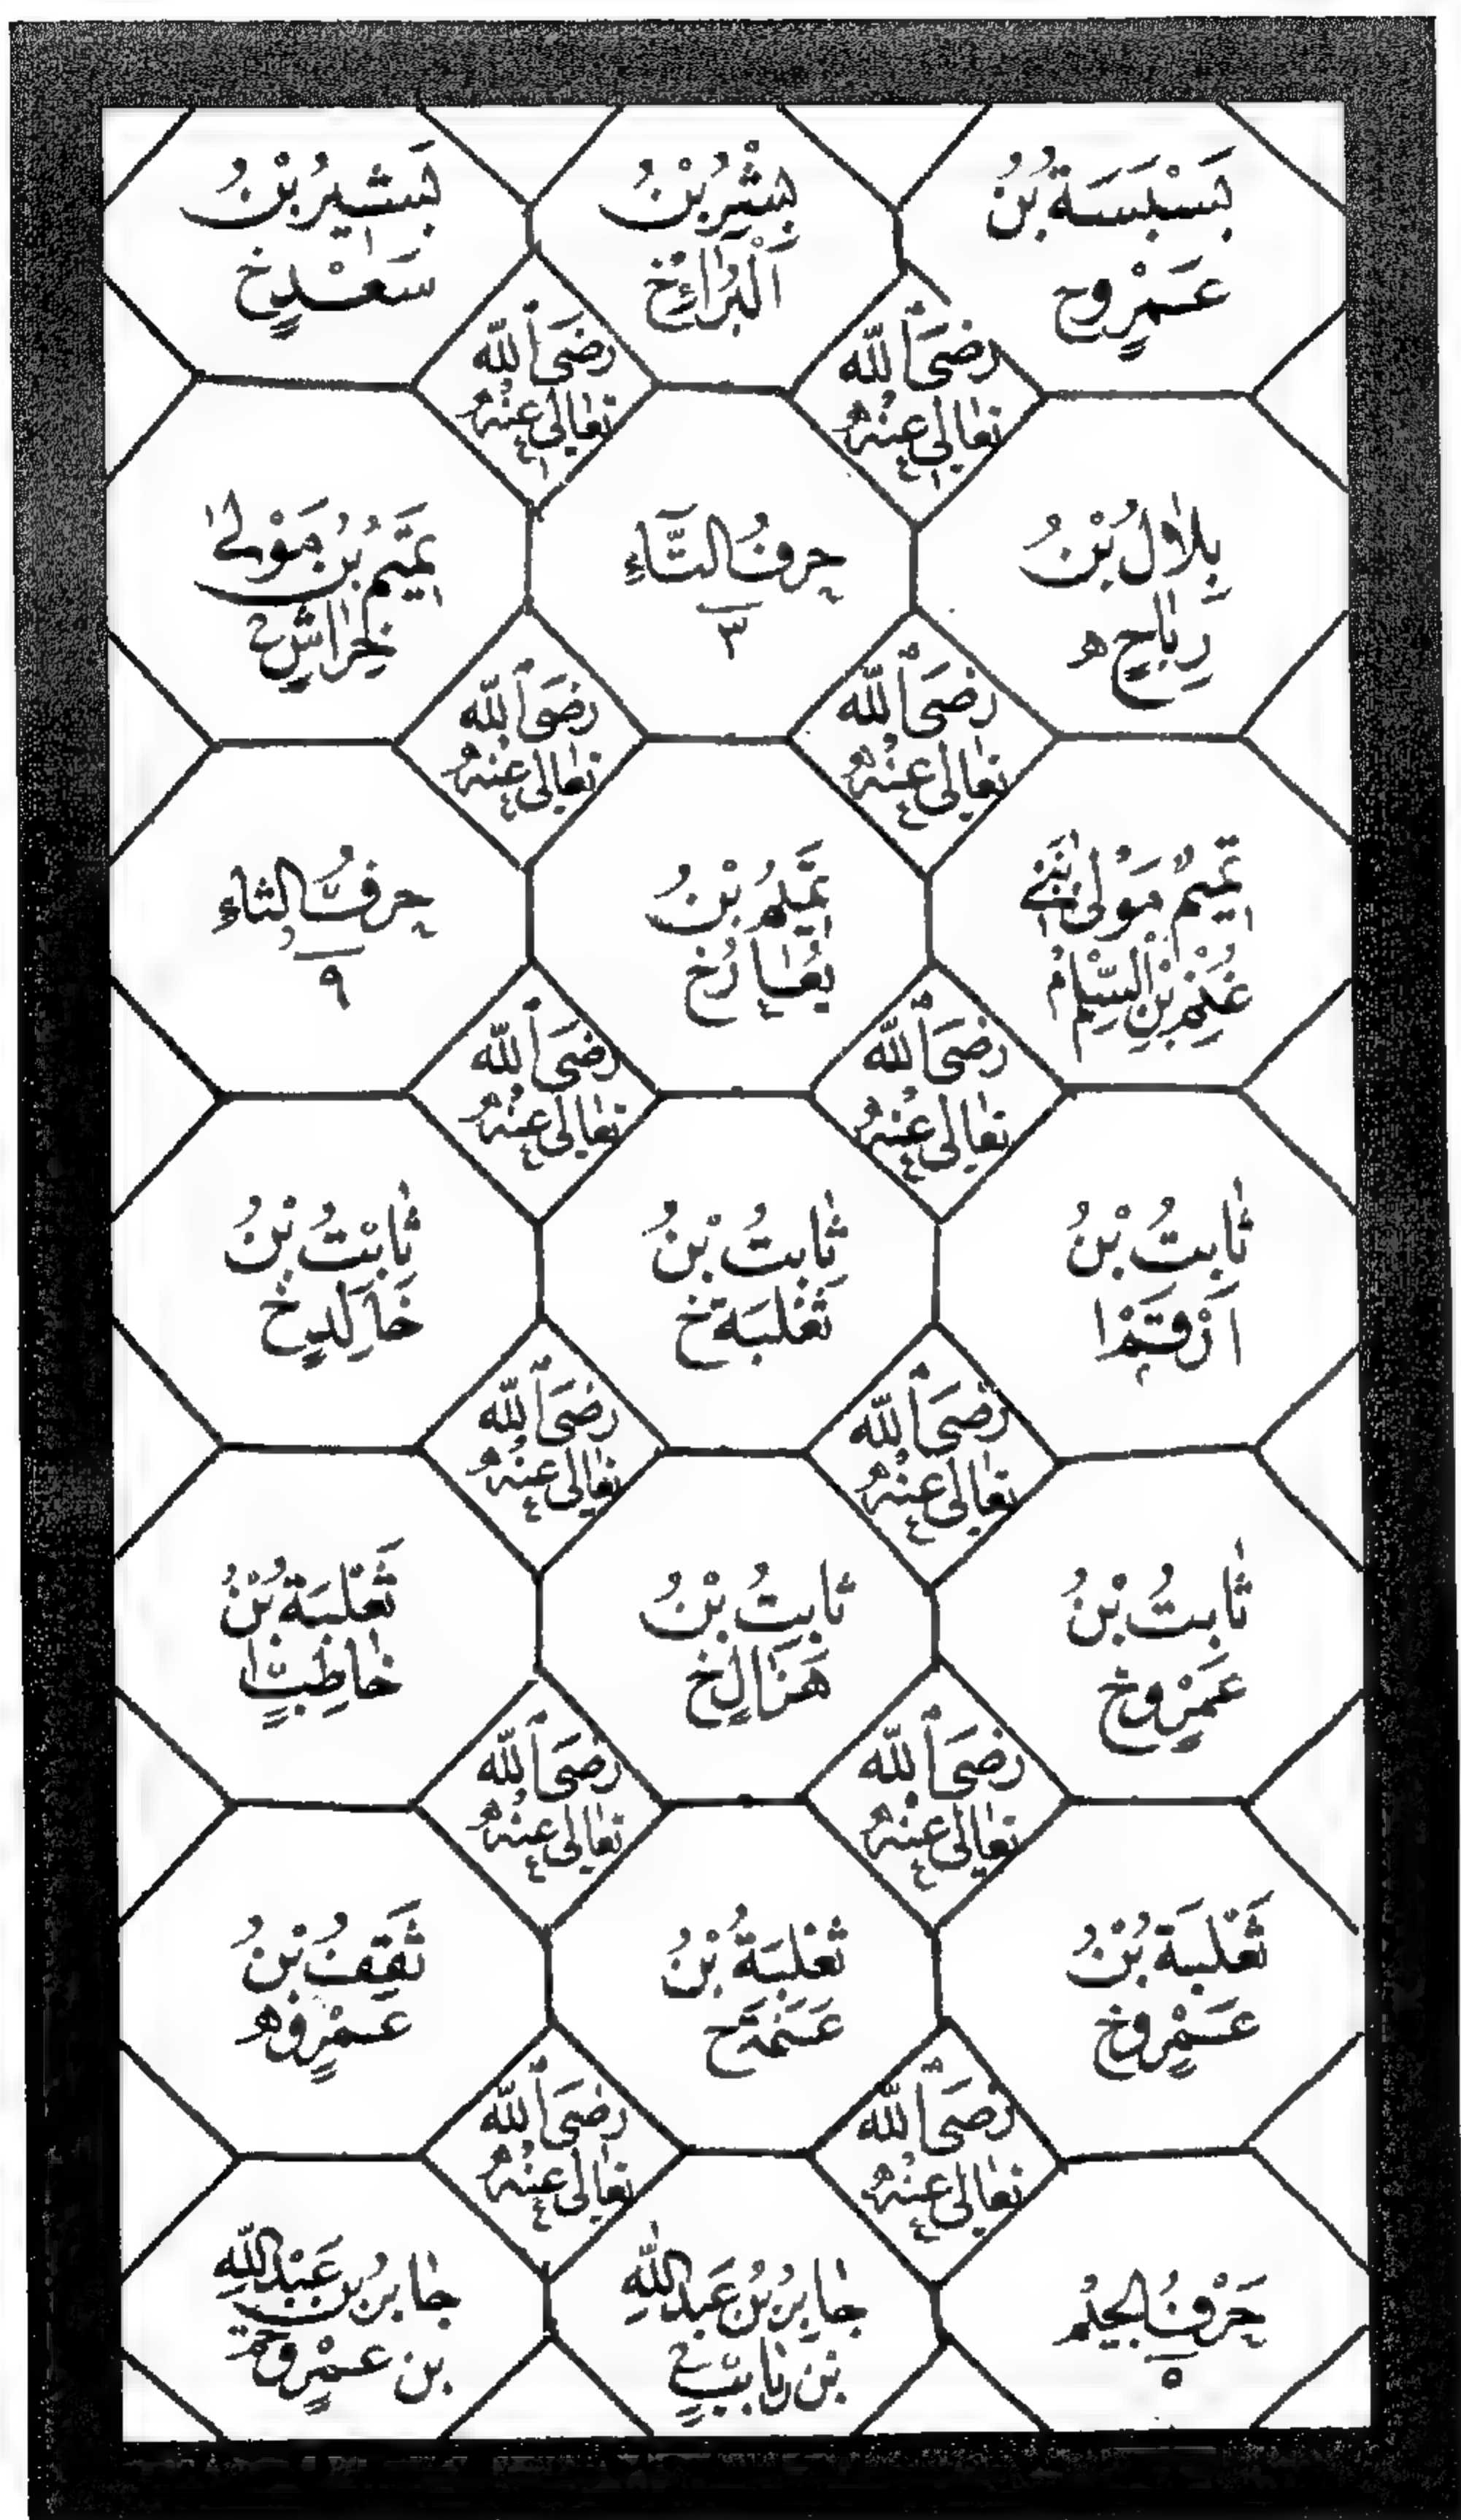 بَسْبَسَةُ بْنُ
عَمْرٍو خ
بِشْرُ بْنُ
الْبَرَاءِ خ
بَشِيرُ بْنُ
سَعْدٍ خ
رَضِيَ اللّٰه
تَعَالٰى عَنْهُ
رَضِيَ اللّٰه
تَعَالٰى عَنْهُ
بِلَالُ بْنُ
رَبَاحٍ ه
حرفُ التَّاءِ
٣
تَمِيمُ بْنُ مَوْلٰى
خِرَاشٍ خ
رَضِيَ اللّٰه
تَعَالٰى عَنْهُ
رَضِيَ اللّٰه
تَعَالٰى عَنْهُ
تَمِيمٌ مَوْلٰى بَنِي
غَنْمِ بْنِ السِّلْمِ ا
تَمِيمُ بْنُ
يُعَارَ خ
حرفُ الثَّاءِ
٩
رَضِيَ اللّٰه
تَعَالٰى عَنْهُ
رَضِيَ اللّٰه
تَعَالٰى عَنْهُ
ثَابِتُ بْنُ
اَرْقَمَ ا
ثَابِتُ بْنُ
ثَعْلَبَةَ خ
ثَابِتُ بْنُ
خَالِدٍ خ
رَضِيَ اللّٰه
تَعَالٰى عَنْهُ
رَضِيَ اللّٰه
تَعَالٰى عَنْهُ
ثَابِتُ بْنُ
عَمْرٍو خ
ثَابِتُ بْنُ
هَزَّالٍ خ
ثَعْلَبَةُ بْنُ
حَاطِبٍ ا
رَضِيَ اللّٰه
تَعَالٰى عَنْهُ
رَضِيَ اللّٰه
تَعَالٰى عَنْهُ
ثَعْلَبَةُ بْنُ
عَمْرٍو خ
ثَعْلَبَةُ بْنُ
عَنَمَةَ خ
ثَقِفُ بْنُ
عَمْرٍو ه
رَضِيَ اللّٰه
تَعَالٰى عَنْهُ
رَضِيَ اللّٰه
تَعَالٰى عَنْهُ
حَرْفُ الْجِيْمِ
٥
جَابِرُ بْنُ عَبْدِ اللّٰهِ
بْنِ رِيَابٍ خ
جَابِرُ بْنُ عَبْدِ اللّٰهِ
بْنِ عَمْرٍو خ